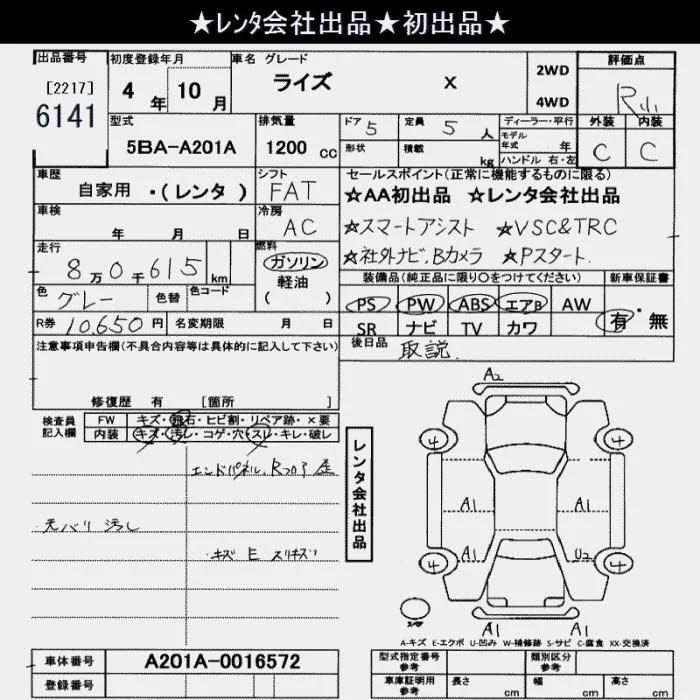 ★レンタ会社出品★初出品★
出品番号 初度登録年月 車名 グレード 評価点
[2217] 4 年 10 月 ライズ X 2WD 4WD
6141
型式 排気量 ドア 5 定員 5 人 ディーラー・平行 外装 内装
5BA-A201A 1200 cc 形状 積載 kg モデル年式 年 ハンドル 右・左 C C
車歴 シフト セールスポイント(正常に機能するものに限る)
自家用 ・(レンタ) FAT ★AA初出品 ★レンタ会社出品
車検 冷房 ★スマートアシスト ★VSC&TRC
年 月 日 AC
走行 燃料 ★社外ナビ、Bカメラ ★Pスタート
8万0千615 km ガソリン 装備品(純正品に限り○をつけてください) 新車保証書
色 グレー 色替 色コード 軽油 ( ) PS PW ABS エアB AW 有・無
R券 10,650 円 名変期限 月 日 SR ナビ TV カワ
注意事項申告欄(不具合内容等は具体的に記入して下さい) 後日品 取説
修復歴 有 [箇所 ]
検査員記入欄 FW キズ・飛石・ヒビ割・リペア跡・×要
内装 キズ・汚レ・コゲ・穴・スレ・キレ・破レ
A2
エンドパネル、Rフロア
レンタ会社出品
4 4
A1 A1
天バリ 汚レ
キズ E スリキズ
4 A1 U2 4
スペア
A1 A1
A-キズ E-エクボ U-凹み W-補修跡 S-サビ C-腐食 XX-交換済
車体番号 A201A-0016572 型式指定番号 参考 類別区分 参考
登録番号 車庫証明用 参考 長さ cm 幅 cm 高さ cm